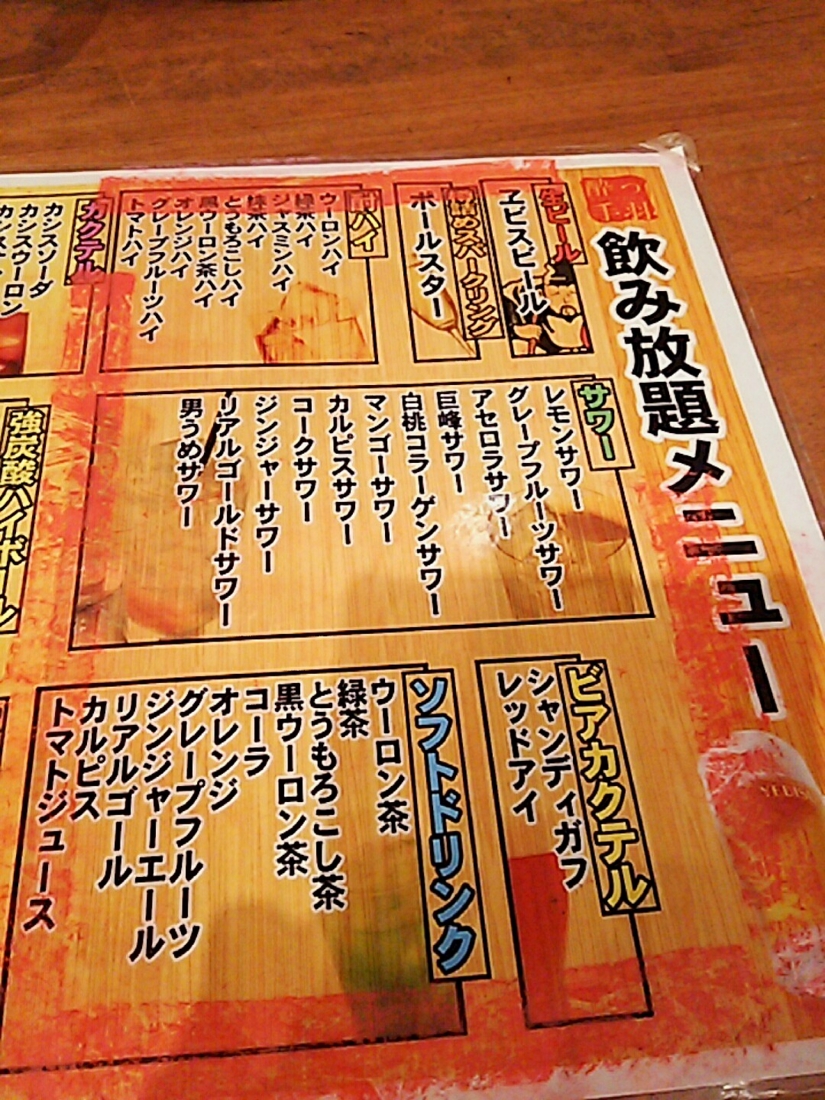 飲み放題メニュー
生ビール
ヱビスビール
樽詰めスパークリング
ポールスター
酎ハイ
ウーロンハイ
緑茶ハイ
ジャスミンハイ
緑茶ハイ
とうもろこしハイ
黒ウーロン茶ハイ
オレンジハイ
グレープフルーツハイ
トマトハイ
カクテル
カシスソーダ
カシスウーロン
サワー
レモンサワー
グレープフルーツサワー
アセロラサワー
巨峰サワー
白桃コラーゲンサワー
マンゴーサワー
カルピスサワー
コークサワー
ジンジャーサワー
リアルゴールドサワー
男うめサワー
強炭酸ハイボール
ビアカクテル
シャンディガフ
レッドアイ
ソフトドリンク
ウーロン茶
緑茶
とうもろこし茶
黒ウーロン茶
コーラ
オレンジ
グレープフルーツ
ジンジャーエール
リアルゴール
カルピス
トマトジュース